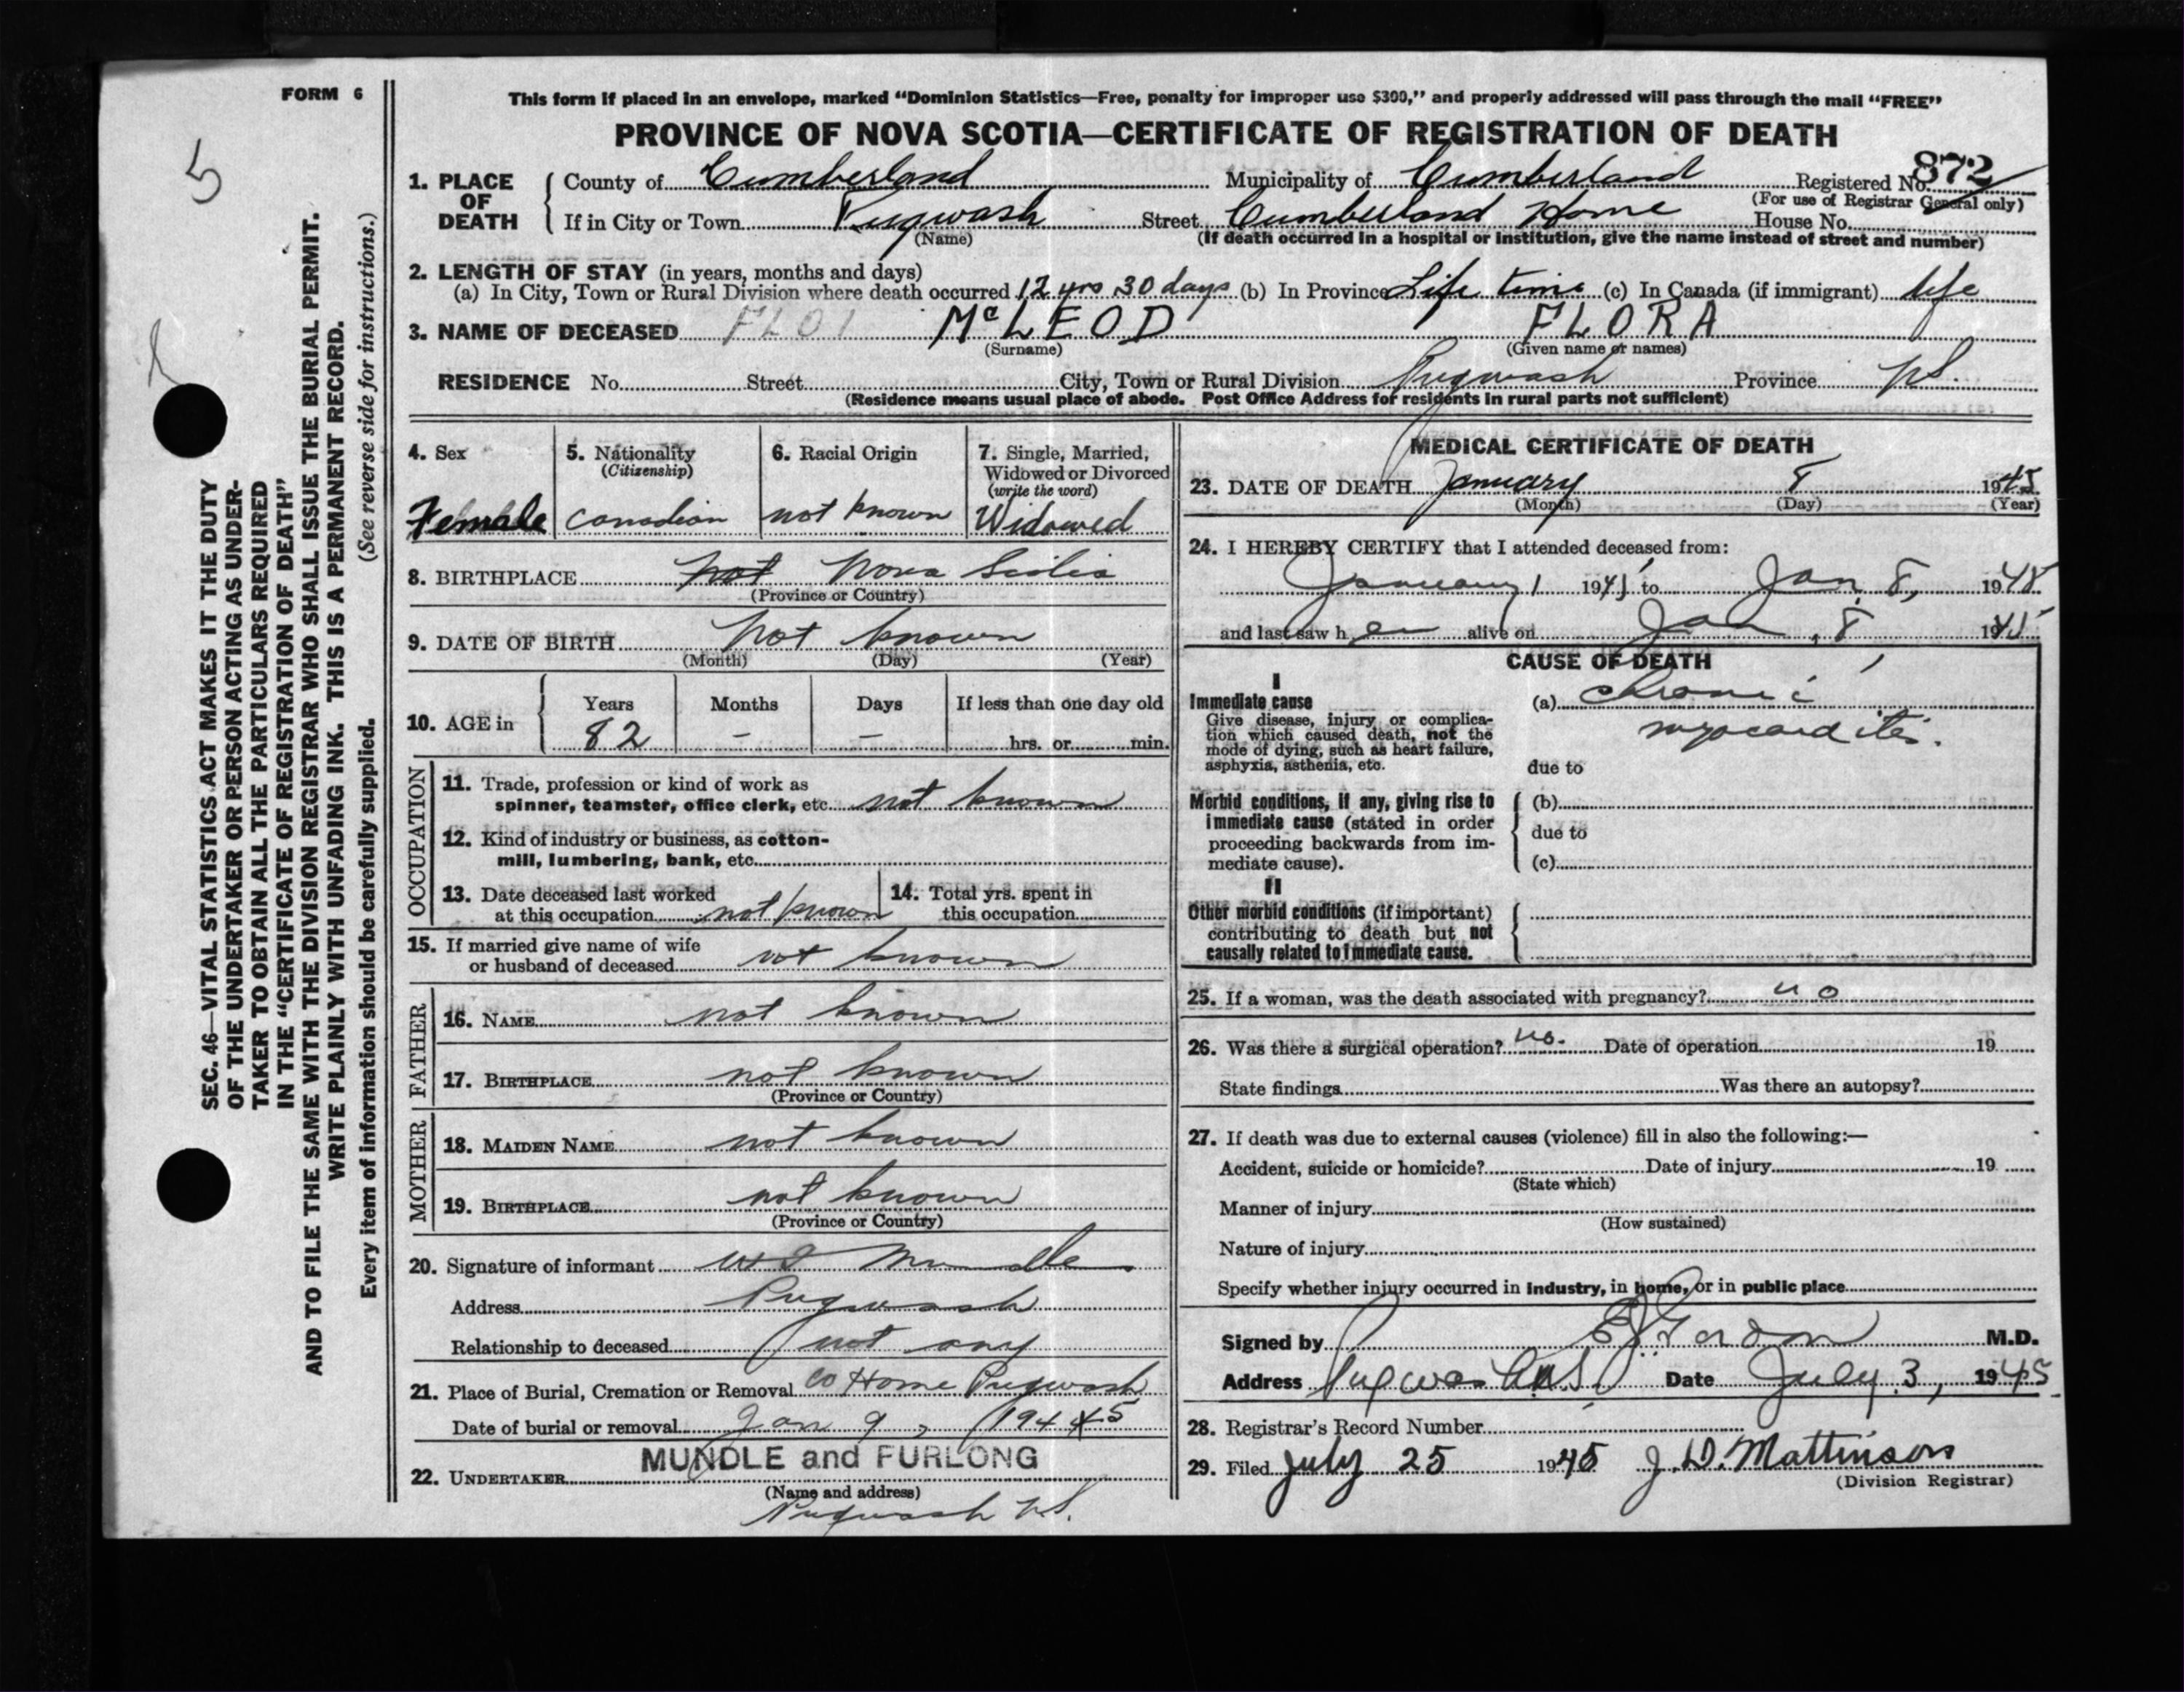 FORM 6
5
SEC. 46—VITAL STATISTICS ACT MAKES IT THE DUTY
OF THE UNDERTAKER OR PERSON ACTING AS UNDER-
TAKER TO OBTAIN ALL THE PARTICULARS REQUIRED
IN THE "CERTIFICATE OF REGISTRATION OF DEATH"
AND TO FILE THE SAME WITH THE DIVISION REGISTRAR WHO SHALL ISSUE THE BURIAL PERMIT.
WRITE PLAINLY WITH UNFADING INK. THIS IS A PERMANENT RECORD.
Every item of information should be carefully supplied. (See reverse side for instructions.)
This form if placed in an envelope, marked "Dominion Statistics—Free, penalty for improper use $300," and properly addressed will pass through the mail "FREE"
PROVINCE OF NOVA SCOTIA—CERTIFICATE OF REGISTRATION OF DEATH
1. PLACE OF DEATH
County of Cumberland Municipality of Cumberland Registered No. 872
(For use of Registrar General only)
If in City or Town Pugwash Street Cumberland Home House No.
(Name) (If death occurred in a hospital or institution, give the name instead of street and number)
2. LENGTH OF STAY (in years, months and days)
(a) In City, Town or Rural Division where death occurred 12 yrs 30 days (b) In Province Life time (c) In Canada (if immigrant) life
3. NAME OF DECEASED FLO McLEOD FLORA
(Surname) (Given name or names)
RESIDENCE No. Street City, Town or Rural Division Pugwash Province NS.
(Residence means usual place of abode. Post Office Address for residents in rural parts not sufficient)
4. Sex
Female
5. Nationality
(Citizenship)
Canadian
6. Racial Origin
not known
7. Single, Married,
Widowed or Divorced
(write the word)
Widowed
8. BIRTHPLACE not Nova Scotia
(Province or Country)
9. DATE OF BIRTH Not known
(Month) (Day) (Year)
10. AGE in
Years Months Days If less than one day old
82 - - hrs. or min.
OCCUPATION
11. Trade, profession or kind of work as
spinner, teamster, office clerk, etc. not known
12. Kind of industry or business, as cotton-
mill, lumbering, bank, etc.
13. Date deceased last worked
at this occupation not known
14. Total yrs. spent in
this occupation
15. If married give name of wife
or husband of deceased not known
FATHER
16. NAME not known
17. BIRTHPLACE not known
(Province or Country)
MOTHER
18. MAIDEN NAME not known
19. BIRTHPLACE not known
(Province or Country)
20. Signature of informant Mundle
Address Pugwash
Relationship to deceased not any
21. Place of Burial, Cremation or Removal Co Home Pugwash
Date of burial or removal Jan 9, 1945
22. UNDERTAKER MUNDLE and FURLONG
(Name and address)
Pugwash NS.
MEDICAL CERTIFICATE OF DEATH
23. DATE OF DEATH January 8 1945
(Month) (Day) (Year)
24. I HEREBY CERTIFY that I attended deceased from:
January 1 1945 to Jan. 8, 1945
and last saw h er alive on Jan, 8 1945
CAUSE OF DEATH
I
Immediate cause
Give disease, injury or complica-
tion which caused death, not the
mode of dying, such as heart failure,
asphyxia, asthenia, etc.
(a) Chronic
myocarditis.
due to
Morbid conditions, if any, giving rise to
immediate cause (stated in order
proceeding backwards from im-
mediate cause).
(b)
due to
(c)
II
Other morbid conditions (if important)
contributing to death but not
causally related to immediate cause.
25. If a woman, was the death associated with pregnancy? no
26. Was there a surgical operation? no. Date of operation 19
State findings Was there an autopsy?
27. If death was due to external causes (violence) fill in also the following:—
Accident, suicide or homicide? Date of injury 19
(State which)
Manner of injury
(How sustained)
Nature of injury
Specify whether injury occurred in industry, in home, or in public place
Signed by M.D.
Address Pugwash N.S. Date July 3, 1945
28. Registrar's Record Number
29. Filed July 25 1945 J. D. Mattinson
(Division Registrar)